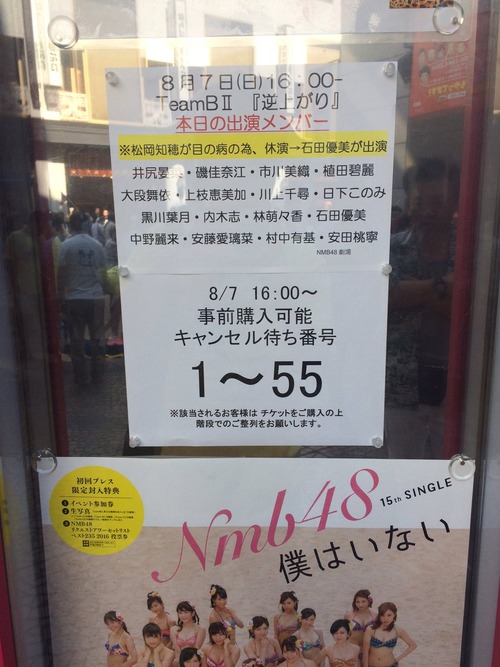 8月7日(日)16:00-
TeamBⅡ 『逆上がり』
本日の出演メンバー
※松岡知穂が目の病の為、休演→石田優美が出演
井尻晏菜・磯佳奈江・市川美織・植田碧麗
大段舞依・上枝恵美加・川上千尋・日下このみ
黒川葉月・内木志・林萌々香・石田優美
中野麗来・安藤愛璃菜・村中有基・安田桃寧
NMB48 劇場
8/7 16:00～
事前購入可能
キャンセル待ち番号
1～55
※該当されるお客様は チケットをご購入の上
階段でのご整列をお願いします。
初回プレス
限定封入特典
1 イベント参加券
2 生写真
3 NMB48
リクエストアワーセットリスト
ベスト235 2016 投票券
Nmb48
15th SINGLE
僕はいない